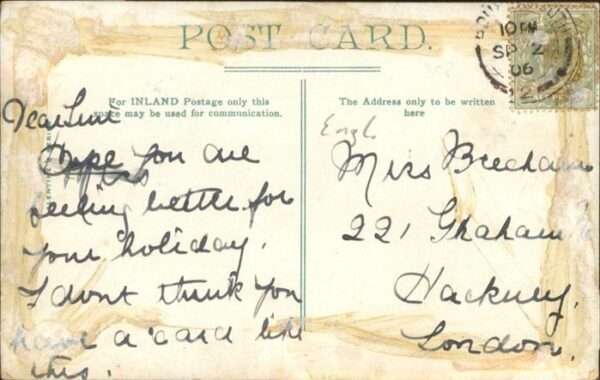 POST CARD.
BOU
10 PM
SP 2
06
For INLAND Postage only this
space may be used for communication.
The Address only to be written
here
Engl
Dear
Hope you are
feeling better for
your holiday.
I dont think you
have a card like
this.
Miss Beecham
221 Graham
Hackney.
London.